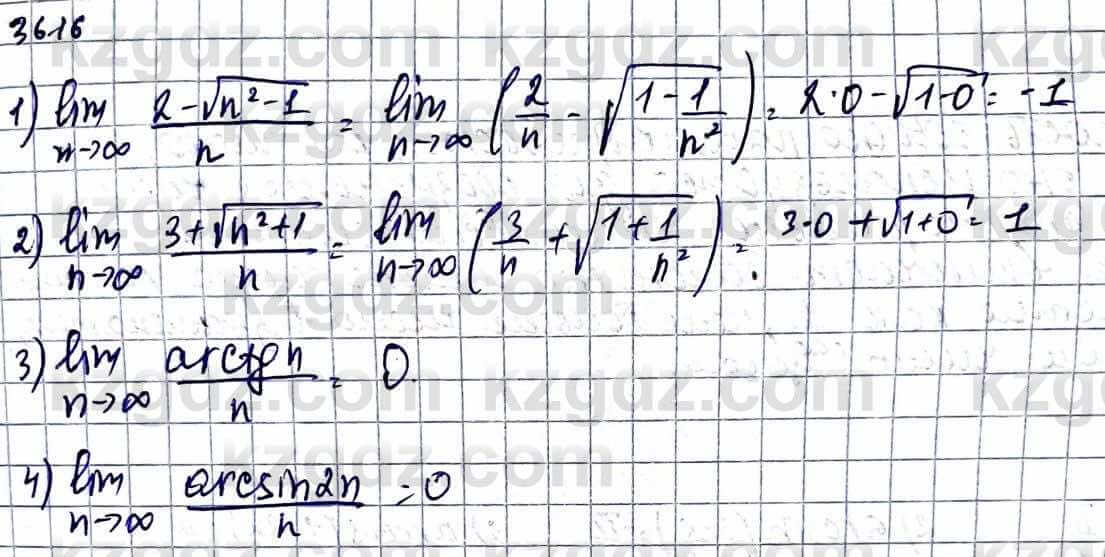 36.16
1) lim n→∞ (2-√(n²-1))/n = lim n→∞ (2/n - √(1-1/n²)) = 2·0-√(1-0) = -1
2) lim n→∞ (3+√(n²+1))/n = lim n→∞ (3/n + √(1+1/n²)) = 3·0+√(1+0) = 1
3) lim n→∞ (arctg n)/n = 0.
4) lim n→∞ (arcsin2n)/n = 0